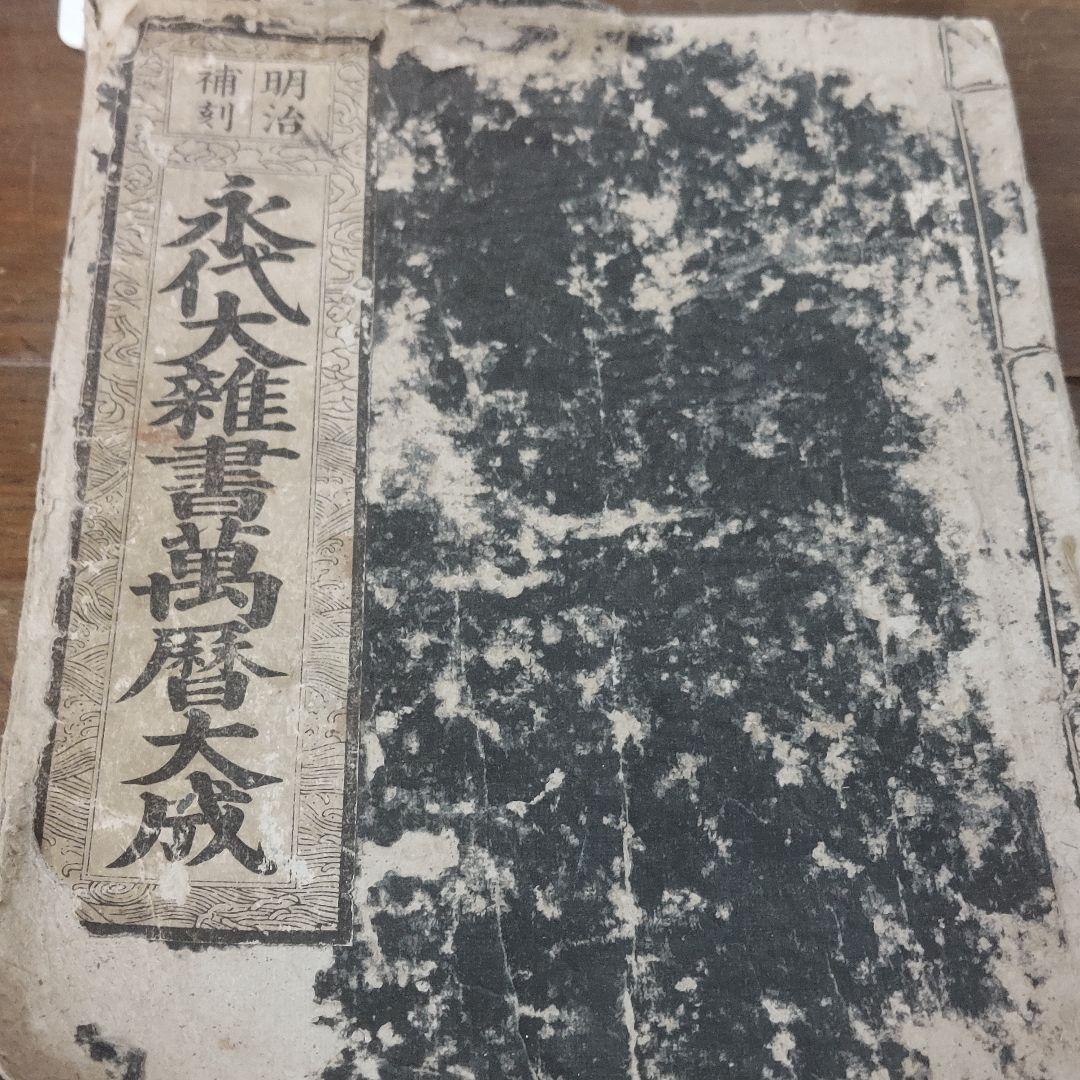 明治
補刻
永代大雜書萬曆大成